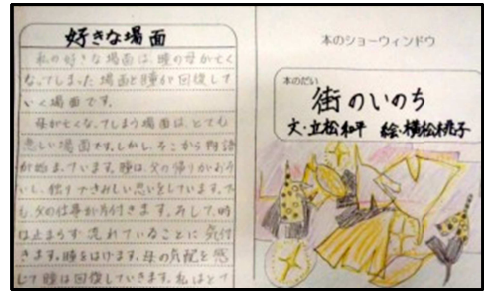 好きな場面
私の好きな場面は、瞳の母が亡く
なってしまった場面と瞳が回復して
いく場面です。
母が亡くなってしまう場面は、とても
悲しい場面です。しかし、そこから物語
が始まっています。瞳は、父の帰りがおそ
いし、独りでさみしい思いをしています。で
も、父の仕事が片付きます。そして、時
は止まらず流れていることに気付
きます。瞳をはげます、母の気配を感
じて瞳は回復していきます。私はとて
本のショーウィンドウ
本のだい
街のいのち
文・立松和平 絵・横松桃子